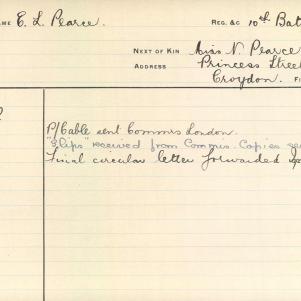 AME E. L. Pearce. REG. &C 10th Bat
NEXT OF KIN Miss N. Pearce
ADDRESS Princess Street
Croydon.
P/Cable sent Commrs London.
"Slips" received from Commrs. Copies
Final circular letter forwarded